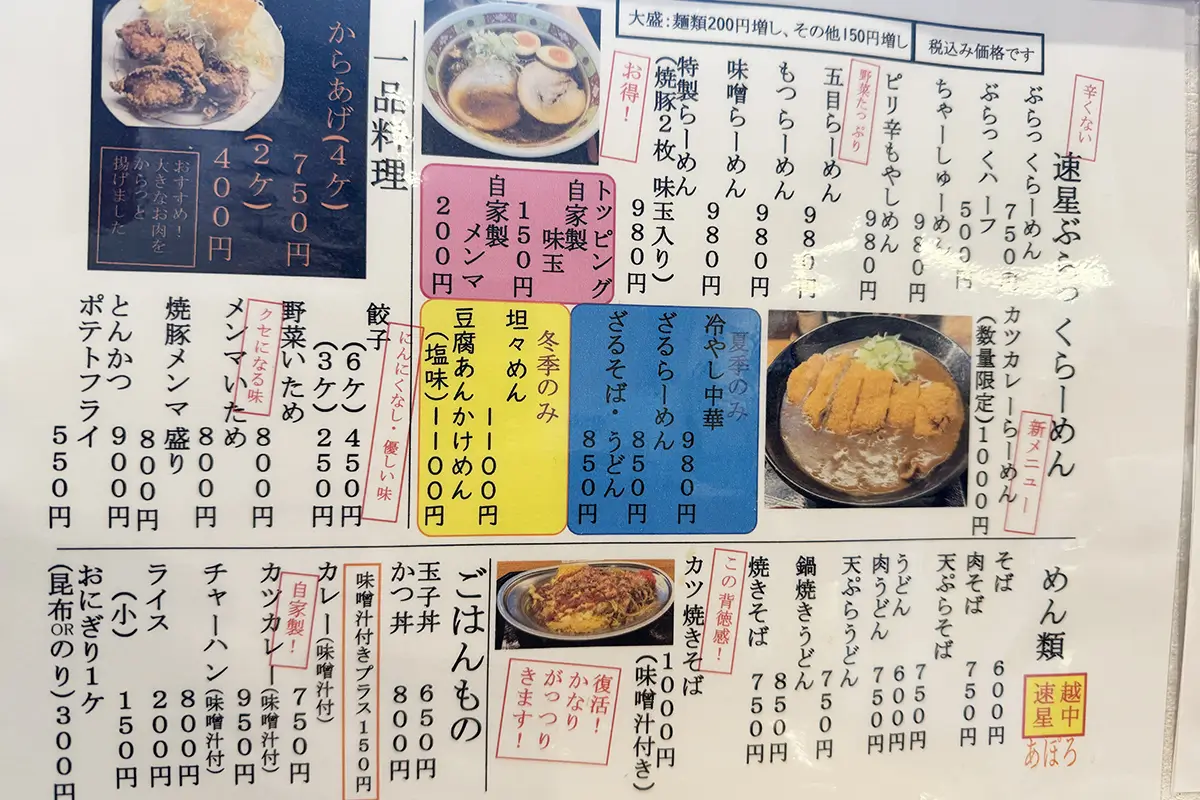 大盛:麺類200円増し、その他150円増し
税込み価格です
辛くない
速星ぶらっくらーめん
ぶらっくらーめん 750円
ぶらっくハーフ 500円
ちゃーしゅーめん 980円
ピリ辛もやしめん 980円
野菜たっぷり
五目らーめん 980円
もつらーめん 980円
味噌らーめん 980円
特製らーめん 980円
(焼豚2枚 味玉入り)
お得!
新メニュー
カツカレーらーめん
(数量限定)1000円
トッピング
自家製 味玉 150円
自家製 メンマ 200円
夏季のみ
冷やし中華 980円
ざるらーめん 850円
ざるそば・うどん 850円
冬季のみ
坦々めん 1100円
豆腐あんかけめん
(塩味)1100円
一品料理
からあげ(4ケ) 750円
(2ケ) 400円
おすすめ!
大きなお肉を
からっと
揚げました
にんにくなし・優しい味
餃子 (6ケ)450円
(3ケ)250円
野菜いため 800円
クセになる味
メンマいため 800円
焼豚メンマ盛り 800円
とんかつ 900円
ポテトフライ 550円
めん類
越中
速星
あぽろ
そば 600円
肉そば 750円
天ぷらそば 750円
うどん 600円
肉うどん 750円
天ぷらうどん 750円
鍋焼きうどん 850円
焼きそば 750円
この背徳感!
カツ焼きそば
1000円(味噌汁付き)
復活!
かなり
がっつり
きます!
ごはんもの
玉子丼 650円
かつ丼 800円
味噌汁付きプラス150円
カレー(味噌汁付) 750円
自家製!
カツカレー(味噌汁付) 950円
チャーハン(味噌汁付) 800円
ライス 200円
(小) 150円
おにぎり1ケ
(昆布ORのり)300円